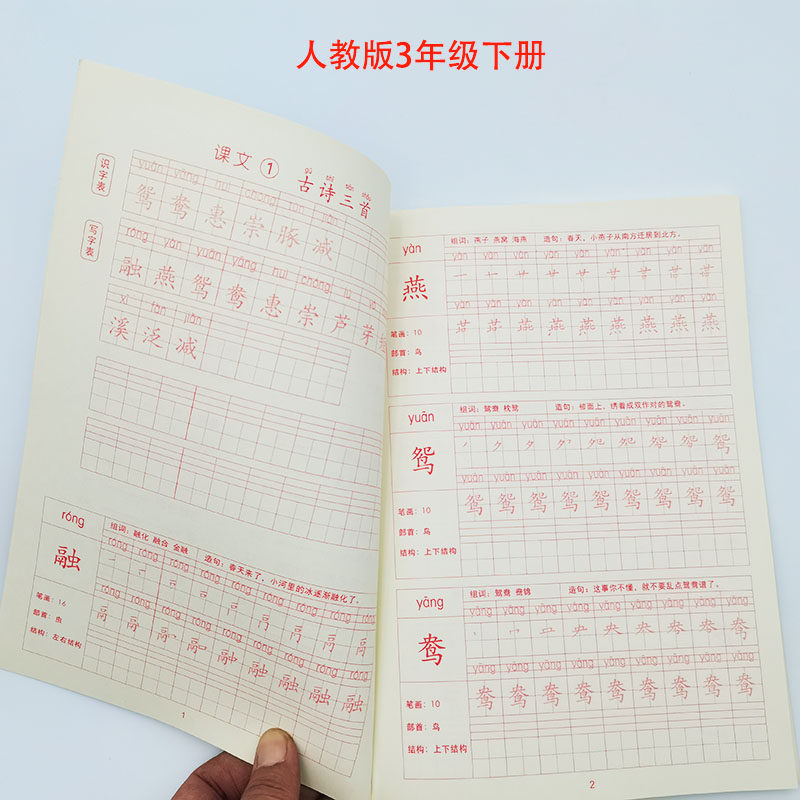 人教版3年级下册
课文 ① 古诗三首
识字表
yuān yāng huì chóng tún jiǎn
鸳 鸯 惠 崇 豚 减
写字表
róng yàn yuān yāng huì chóng lú
融 燕 鸳 鸯 惠 崇 芦 芽
xī fàn jiǎn
溪 泛 减
róng
融
笔画：16
部首：虫
结构：左右结构
组词：融化 融合 金融 造句：春天来了，小河里的冰逐渐融化了。
róng róng róng róng róng róng róng róng róng
róng róng róng róng róng róng róng róng róng
融 融 融 融 融 融
1
yàn
燕
笔画：10
部首：鸟
结构：上下结构
组词：燕子 燕窝 海燕 造句：春天，小燕子从南方迁居到北方。
yàn yàn yàn yàn yàn yàn yàn yàn yàn
yàn yàn yàn yàn yàn yàn yàn yàn yàn
燕 燕 燕 燕 燕
yuān
鸳
笔画：10
部首：鸟
结构：上下结构
组词：鸳鸯 枕鸳 造句：被面上，绣着成双作对的鸳鸯。
yuān yuān yuān yuān yuān yuān yuān yuān yuān
yuān yuān yuān yuān yuān yuān yuān yuān yuān
鸳 鸳 鸳 鸳 鸳 鸳 鸳 鸳
yāng
鸯
笔画：10
部首：鸟
结构：上下结构
组词：鸳鸯 鸯锦 造句：这事你不懂，就不要乱点鸳鸯谱了。
yāng yāng yāng yāng yāng yāng yāng yāng yāng
yāng yāng yāng yāng yāng yāng yāng yāng yāng
鸯 鸯 鸯 鸯 鸯 鸯 鸯 鸯
2